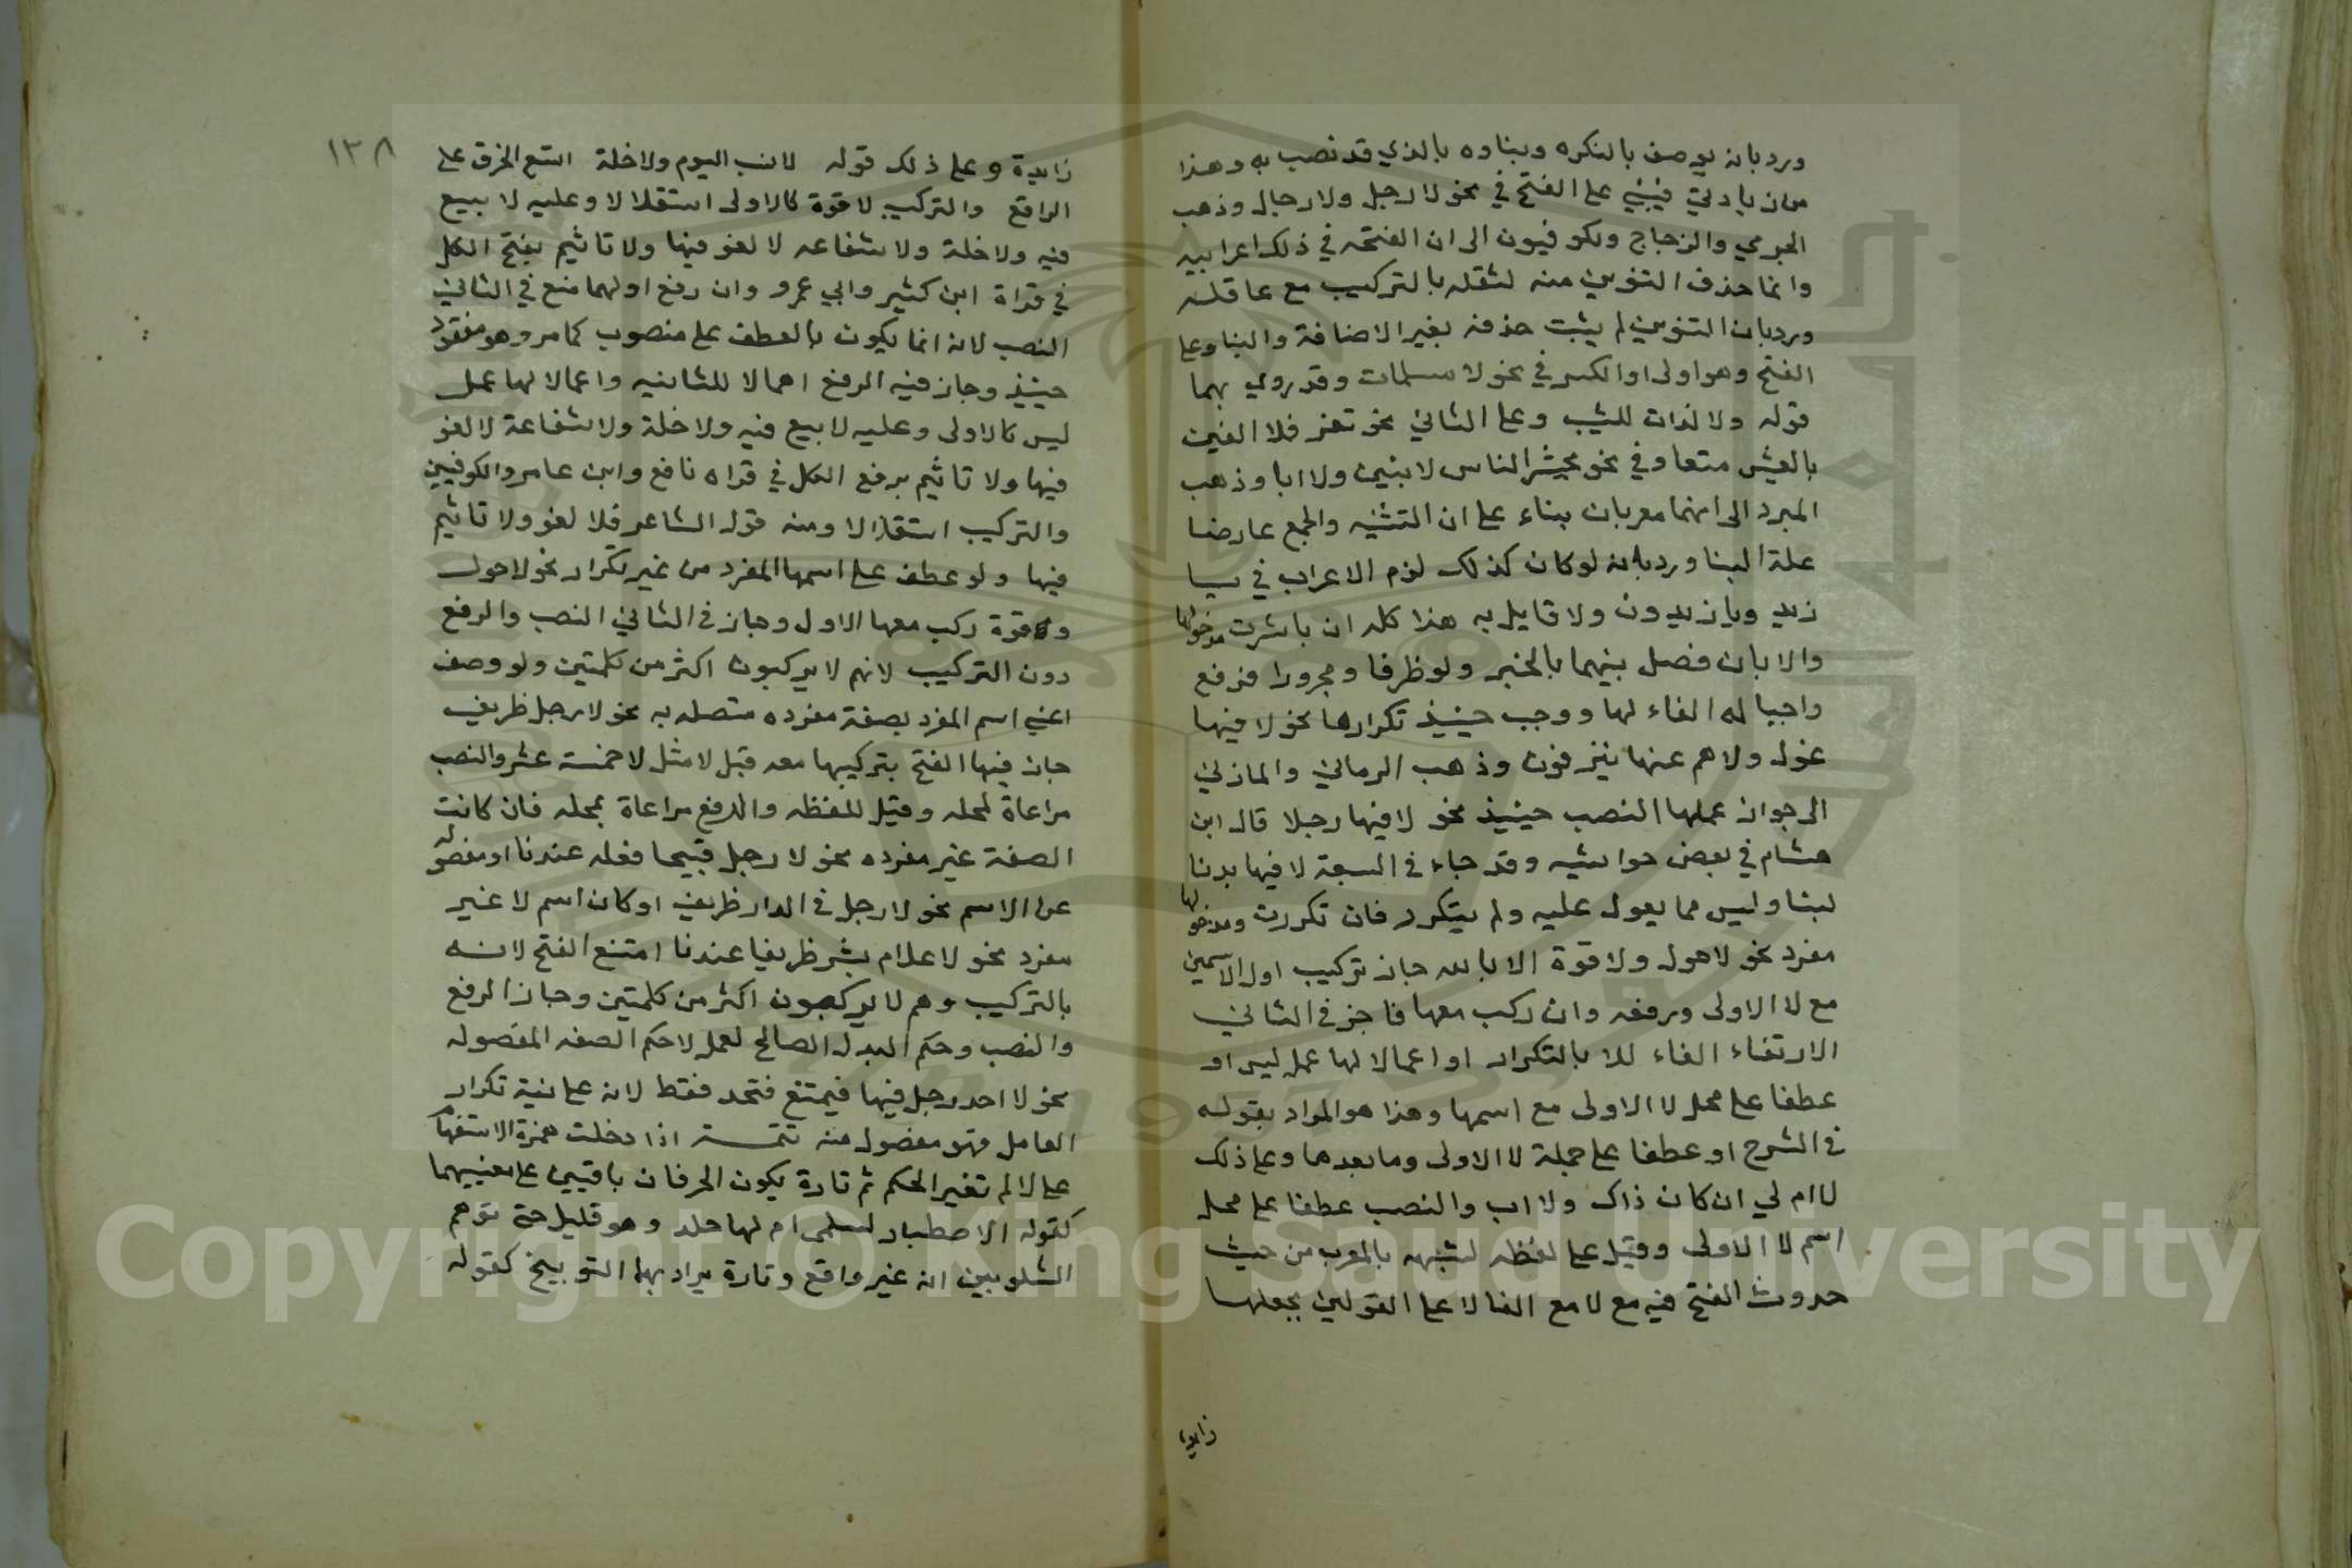 ورد بانه يوصف بالنكره وبناوه بالذي قد نصب به وهذا
من زيادتي فيبني على الفتح في نحو لا رجل ولا رجال وذهب
الجرمي والزجاج والكوفيون الى ان الفتحه في ذلك اعرابيه
وانما حذف التنوين منه لثقله بالتركيب مع عاقله
ورد بان التنوين لم يثبت حذفه بغير الاضافة والبنا وعلى
الفتح وهو اولى او الكسر في نحو لا مسلمات وقد روي بهما
قوله ولا لذات للشيب وعلى الثاني نحو تعز فلا الفين
بالعيش متعا وفي نحو يحشر الناس لا بنين ولا ابا وذهب
المبرد الى انهما معربان بناء على ان التثنيه والجمع عارضا
علة البنا ورد بانه لو كان كذلك لزم الاعراب في يا
زيد ويا زيدون ولا قايل به هذا كله ان باشرت مدخولها
والا بان فصل بينهما بالخبر ولو ظرفا ومجرورا فرفع
واجبا له الغاء لها ووجب حينيذ تكرارها نحو لا فيها
غول ولا هم عنها ينزفون وذهب الرماني والمازني
الى جواز عملها النصب حينيذ نحو لا فيها رجلا قال ابن
هشام في بعض حواشيه وقد جاء في السعة لا فيها بدنا
لبثا وليس مما يعول عليه ولم يتكرر فان تكررت ومدخولها
مفرد نحو لا حول ولا قوة الا بالله جاز تركيب اول الاسمين
مع لا الاولى ورفعه وان ركب معها فاجز في الثاني
الارتفاء الغاء للا بالتكرار او اعمالا لها عمل ليس او
عطفا على محل لا الاولى مع اسمها وهذا هو المراد بقوله
في الشرح او عطفا على جملة لا الاولى وما بعدها وعلى ذلك
لا ام لي ان كان ذاك ولا اب والنصب عطفا على محل
اسم لا الاولى وقيل على لفظه لشبهه بالمعرب من حيث
حدوث الفتح فيه مع لا مع الغا لا على القولين بجعلها
زايدة
١٣٨
زايدة وعلى ذلك قوله لا نسب اليوم ولا خلة اتسع الخرق على
الراقع والتركيب لا قوة كالاولى استقلالا وعليه لا بيع
فيه ولا خلة ولا شفاعه لا لغو فيها ولا تاثيم بفتح الكل
في قراة ابن كثير وابي عمرو وان رفع اولهما منع في الثاني
النصب لانه انما يكون بالعطف على منصوب كما مر وهو مفقود
حينيذ وجاز فيه الرفع اهمالا للثانيه واعمالا لها عمل
ليس كالاولى وعليه لا بيع فيه ولا خلة ولا شفاعة لا لغو
فيها ولا تاثيم برفع الكل في قراه نافع وابن عامر والكوفيين
والتركيب استقلالا ومنه قول الشاعر فلا لغو ولا تاثيم
فيها ولو عطف على اسمها المفرد من غير تكرار نحو لا حول
وقوة ركب معها الاول وجاز في الثاني النصب والرفع
دون التركيب لانهم لا يركبون اكثر من كلمتين ولو وصف
اعني اسم المفرد بصفة مفرده متصله به نحو لا رجل ظريف
جاز فيها الفتح بتركيبها معه قبل لا مثل لا خمسة عشر والنصب
مراعاة لمحله وقيل للفظه والرفع مراعاة لمحله فان كانت
الصفة غير مفرده نحو لا رجل قبيحا فعله عندنا او مفصوله
عن الاسم نحو لا رجل في الدار ظريف او كان اسم لا غير
مفرد نحو لا غلام بشر ظريفا عندنا امتنع الفتح لانه
بالتركيب وهم لا يركبون اكثر من كلمتين وجاز الرفع
والنصب وحكم البدل الصالح لعمل لا حكم الصفه المفصوله
نحو لا احد رجل فيها فيمتنع فتحه فقط لانه على نية تكرار
العامل فهو مفصول منه تتمة اذا دخلت همزة الاستفهام
على لا لم تغير الحكم ثم تارة يكون الحرفان باقيين على معنييهما
كقوله الا اصطبار لسلمى ام لها جلد وهو قليل حتى توهم
الشلوبين انه غير واقع وتارة يراد بهما التوبيخ كقوله
Copyright © King Saud University